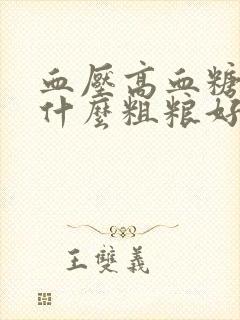 血壓高血糖
什麼粗粮好
王雙義